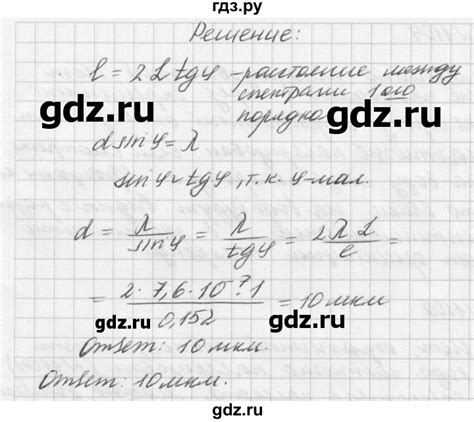 гдз.ру
Решение:
l = 2 L tgφ - расстояние между
спектрами 1 ого
порядка
gdz.ru gdz.ru
d sin φ = λ
sin φ ≈ tg φ, т.к. φ - мал.
gdz.ru gdz.ru
d = λ/sin φ = λ/tg φ = 2 λ L/l =
= 2 · 7,6 · 10⁻⁷ · 1/0,152 = 10 мкм
gdz.ru gdz.ru
Ответ: 10 мкм.
Ответ: 10 мкм.
gdz.ru gdz.ru
гдз.ру